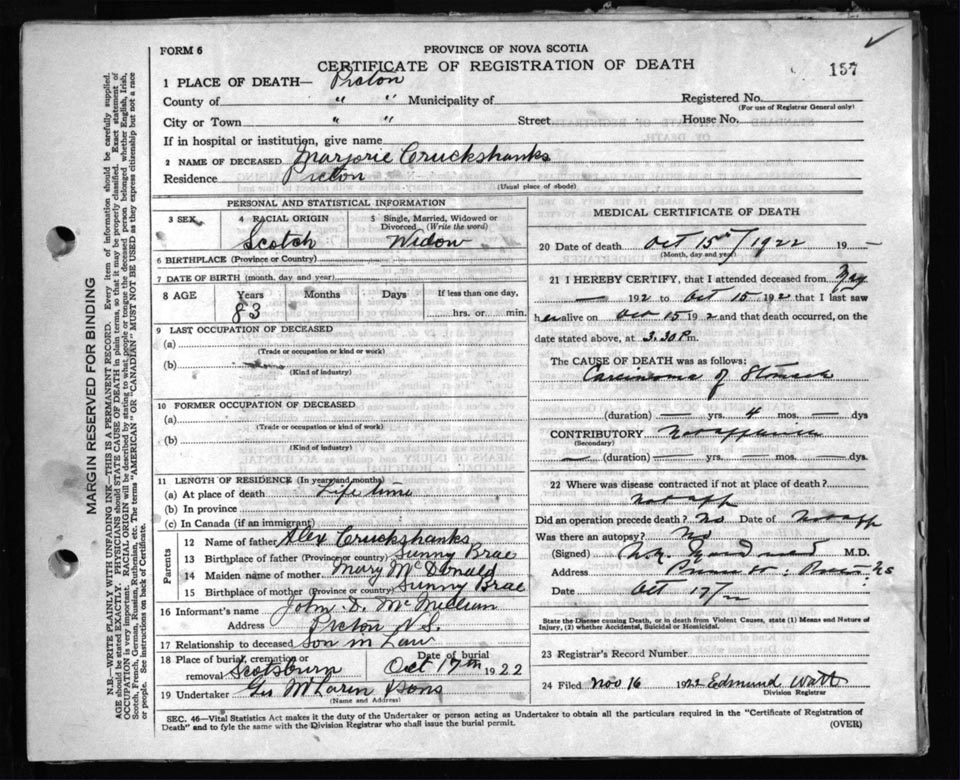 FORM 6
PROVINCE OF NOVA SCOTIA
CERTIFICATE OF REGISTRATION OF DEATH
157
1 PLACE OF DEATH— Picton
County of " " Municipality of Registered No.
(For use of Registrar General only)
City or Town " " Street House No.
If in hospital or institution, give name
2 NAME OF DECEASED Marjorie Cruckshanks
Residence Picton
(Usual place of abode)
PERSONAL AND STATISTICAL INFORMATION
3 SEX 4 RACIAL ORIGIN 5 Single, Married, Widowed or Divorced (Write the word)
Scotch Widow
6 BIRTHPLACE (Province or Country)
7 DATE OF BIRTH (month, day and year)
8 AGE Years Months Days If less than one day,
83 hrs. or min.
9 LAST OCCUPATION OF DECEASED
(a)
(Trade or occupation or kind or work)
(b)
(Kind of industry)
10 FORMER OCCUPATION OF DECEASED
(a)
(Trade or occupation or kind of work)
(b)
(Kind of industry)
11 LENGTH OF RESIDENCE (In years and months)
(a) At place of death Life time
(b) In province
(c) In Canada (if an immigrant)
Parents
12 Name of father Alex Cruckshanks
13 Birthplace of father (Province or country) Sunny Brae
14 Maiden name of mother Mary McDonald
15 Birthplace of mother (Province or country) Sunny Brae
16 Informant's name John D. McMillan
Address Picton N.S.
17 Relationship to deceased Son in Law
18 Place of burial, cremation or removal Scotsburn Date of burial Oct 17th 1922
19 Undertaker Geo McLaren & Sons
(Name and Address)
MEDICAL CERTIFICATE OF DEATH
20 Date of death Oct 15th / 1922 19
(Month, day and year)
21 I HEREBY CERTIFY, that I attended deceased from May
— 192 to Oct 15 192 that I last saw
her alive on Oct 15 192 and that death occurred, on the
date stated above, at 3.30 P m.
The CAUSE OF DEATH was as follows:
Carcinoma of Stomach
(duration) — yrs. 4 mos. — dys
CONTRIBUTORY
(Secondary)
— (duration) — yrs. — mos. — dys.
22 Where was disease contracted if not at place of death?
Not app
Did an operation precede death? No Date of Not app
Was there an autopsy? No
(Signed) M.D.
Address N S
Date Oct 17/22
State the Disease causing Death, or in death from Violent Causes, state (1) Means and Nature of Injury, (2) whether Accidental, Suicidal or Homicidal.
23 Registrar's Record Number
24 Filed Nov 16 1922 Edmund Watt
Division Registrar
SEC. 46—Vital Statistics Act makes it the duty of the Undertaker or person acting as Undertaker to obtain all the particulars required in the "Certificate of Registration of
Death" and to fyle the same with the Division Registrar who shall issue the burial permit. (OVER)
MARGIN RESERVED FOR BINDING
N.B—WRITE PLAINLY WITH UNFADING INK—THIS IS A PERMANENT RECORD. Every item of information should be carefully supplied.
AGE should be stated EXACTLY. PHYSICIANS should STATE CAUSE OF DEATH in plain terms, so that it may be properly classified. Exact statement of
OCCUPATION is very important. RACIAL ORIGIN will be described by stating to what people or tongue the deceased person belonged, whether English, Irish,
Scotch, French, German, Russian, Ruthenian, etc. The terms "AMERICAN" OR "CANADIAN" MUST NOT BE USED as they express citizenship but not a race
or people. See instructions on back of Certificate.